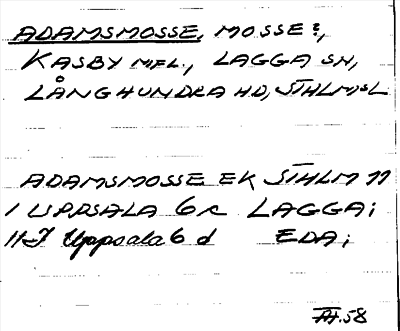 ADAMSMOSSE, MOSSE?,
KASBY M.FL., LAGGA SN,
LÅNGHUNDRA HD, STHLMS L
ADAMSMOSSE EK STHLM 77
1 UPPSALA 6 c LAGGA;
Uppsala 6 d EDA;
58